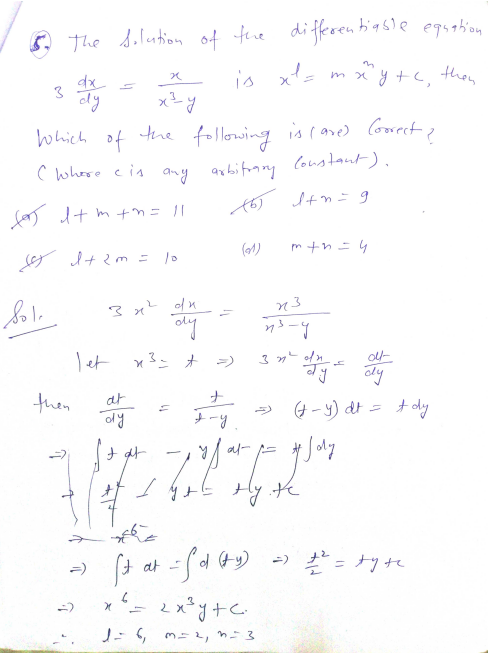 5. The solution of the differentiable equation
3 dx/dy = x/(x³-y) is x^l = m x^n y + c, then
Which of the following is (are) correct?
(Where c is any arbitrary constant).
(a) l+m+n = 11 (b) l+n = 9
(c) l+2m = 10 (d) m+n = 4
Sol.
3x² dx/dy = x3/(x3-y)
let x³ = t ⇒ 3x² dx/dy = dt/dy
then dt/dy = t/(t-y) ⇒ (t-y) dt = t dy
⇒ ∫t dt - y∫dt = t∫dy
⇒ ∫t dt = ∫d(ty) ⇒ t²/2 = ty+c
⇒ x⁶ = 2x³y+c.
∴ l=6, m=2, n=3